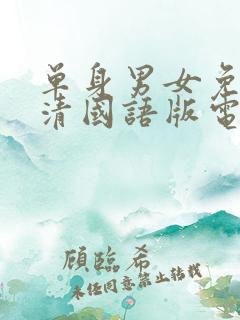 單身男女免
清國語版電
顧臨希
未经同意禁止转载